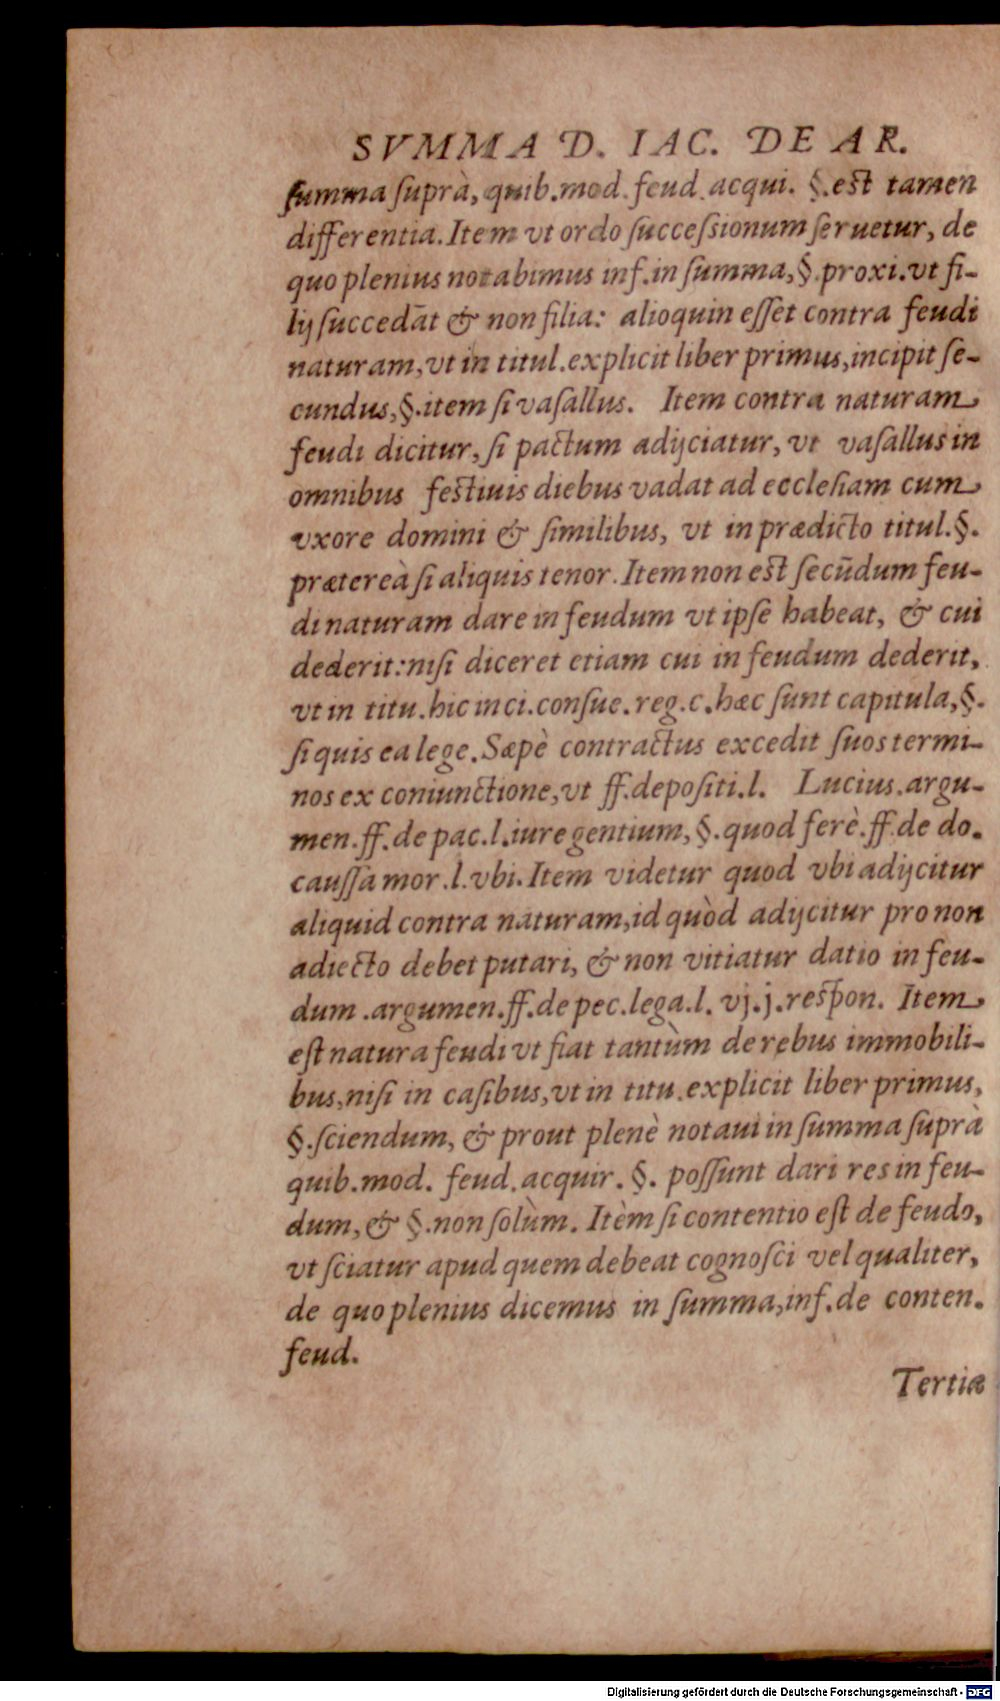 SVMMA D. IAC. DE AR.
summa suprà, quib.mod.feud.acqui. §.est tamen
differentia.Item vt ordo successionum seruetur, de
quo plenius notabimus inf.in summa,§.proxi.vt fi-
lij succedāt & non filia: alioquin esset contra feudi
naturam,vt in titul.explicit liber primus,incipit se-
cundus,§.item si vasallus. Item contra naturam
feudi dicitur, si pactum adijciatur, vt vasallus in
omnibus festiuis diebus vadat ad ecclesiam cum
vxore domini & similibus, vt in prædicto titul.§.
prætereà si aliquis tenor.Item non est secūdum feu-
di naturam dare in feudum vt ipse habeat, & cui
dederit:nisi diceret etiam cui in feudum dederit,
vt in titu.hic inci.consue.reg.c.hæc sunt capitula,§.
si quis ea lege.Sæpè contractus excedit suos termi-
nos ex coniunctione,vt ff.depositi.l. Lucius.argu-
men.ff.de pac.l.iure gentium,§.quod ferè.ff.de do.
caussa mor.l.vbi.Item videtur quod vbi adijcitur
aliquid contra naturam,id quòd adijcitur pro non
adiecto debet putari, & non vitiatur datio in feu-
dum .argumen.ff.de pec.lega.l. vj.j.respon. Item
est natura feudi vt fiat tantùm de rebus immobili-
bus,nisi in casibus,vt in titu.explicit liber primus,
§.sciendum, & prout plenè notaui in summa suprà
quib.mod. feud.acquir. §. possunt dari res in feu-
dum, & §.non solùm. Itèm si contentio est de feudo,
vt sciatur apud quem debeat cognosci vel qualiter,
de quo plenius dicemus in summa,inf.de conten.
feud.
Tertiæ
Digitalisierung gefördert durch die Deutsche Forschungsgemeinschaft - DFG